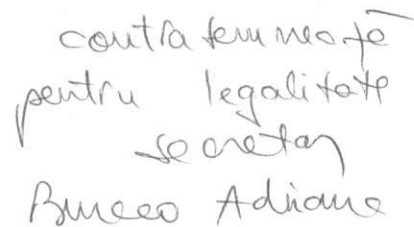 contrasemnează
pentru legalitate
secretar
Adriana